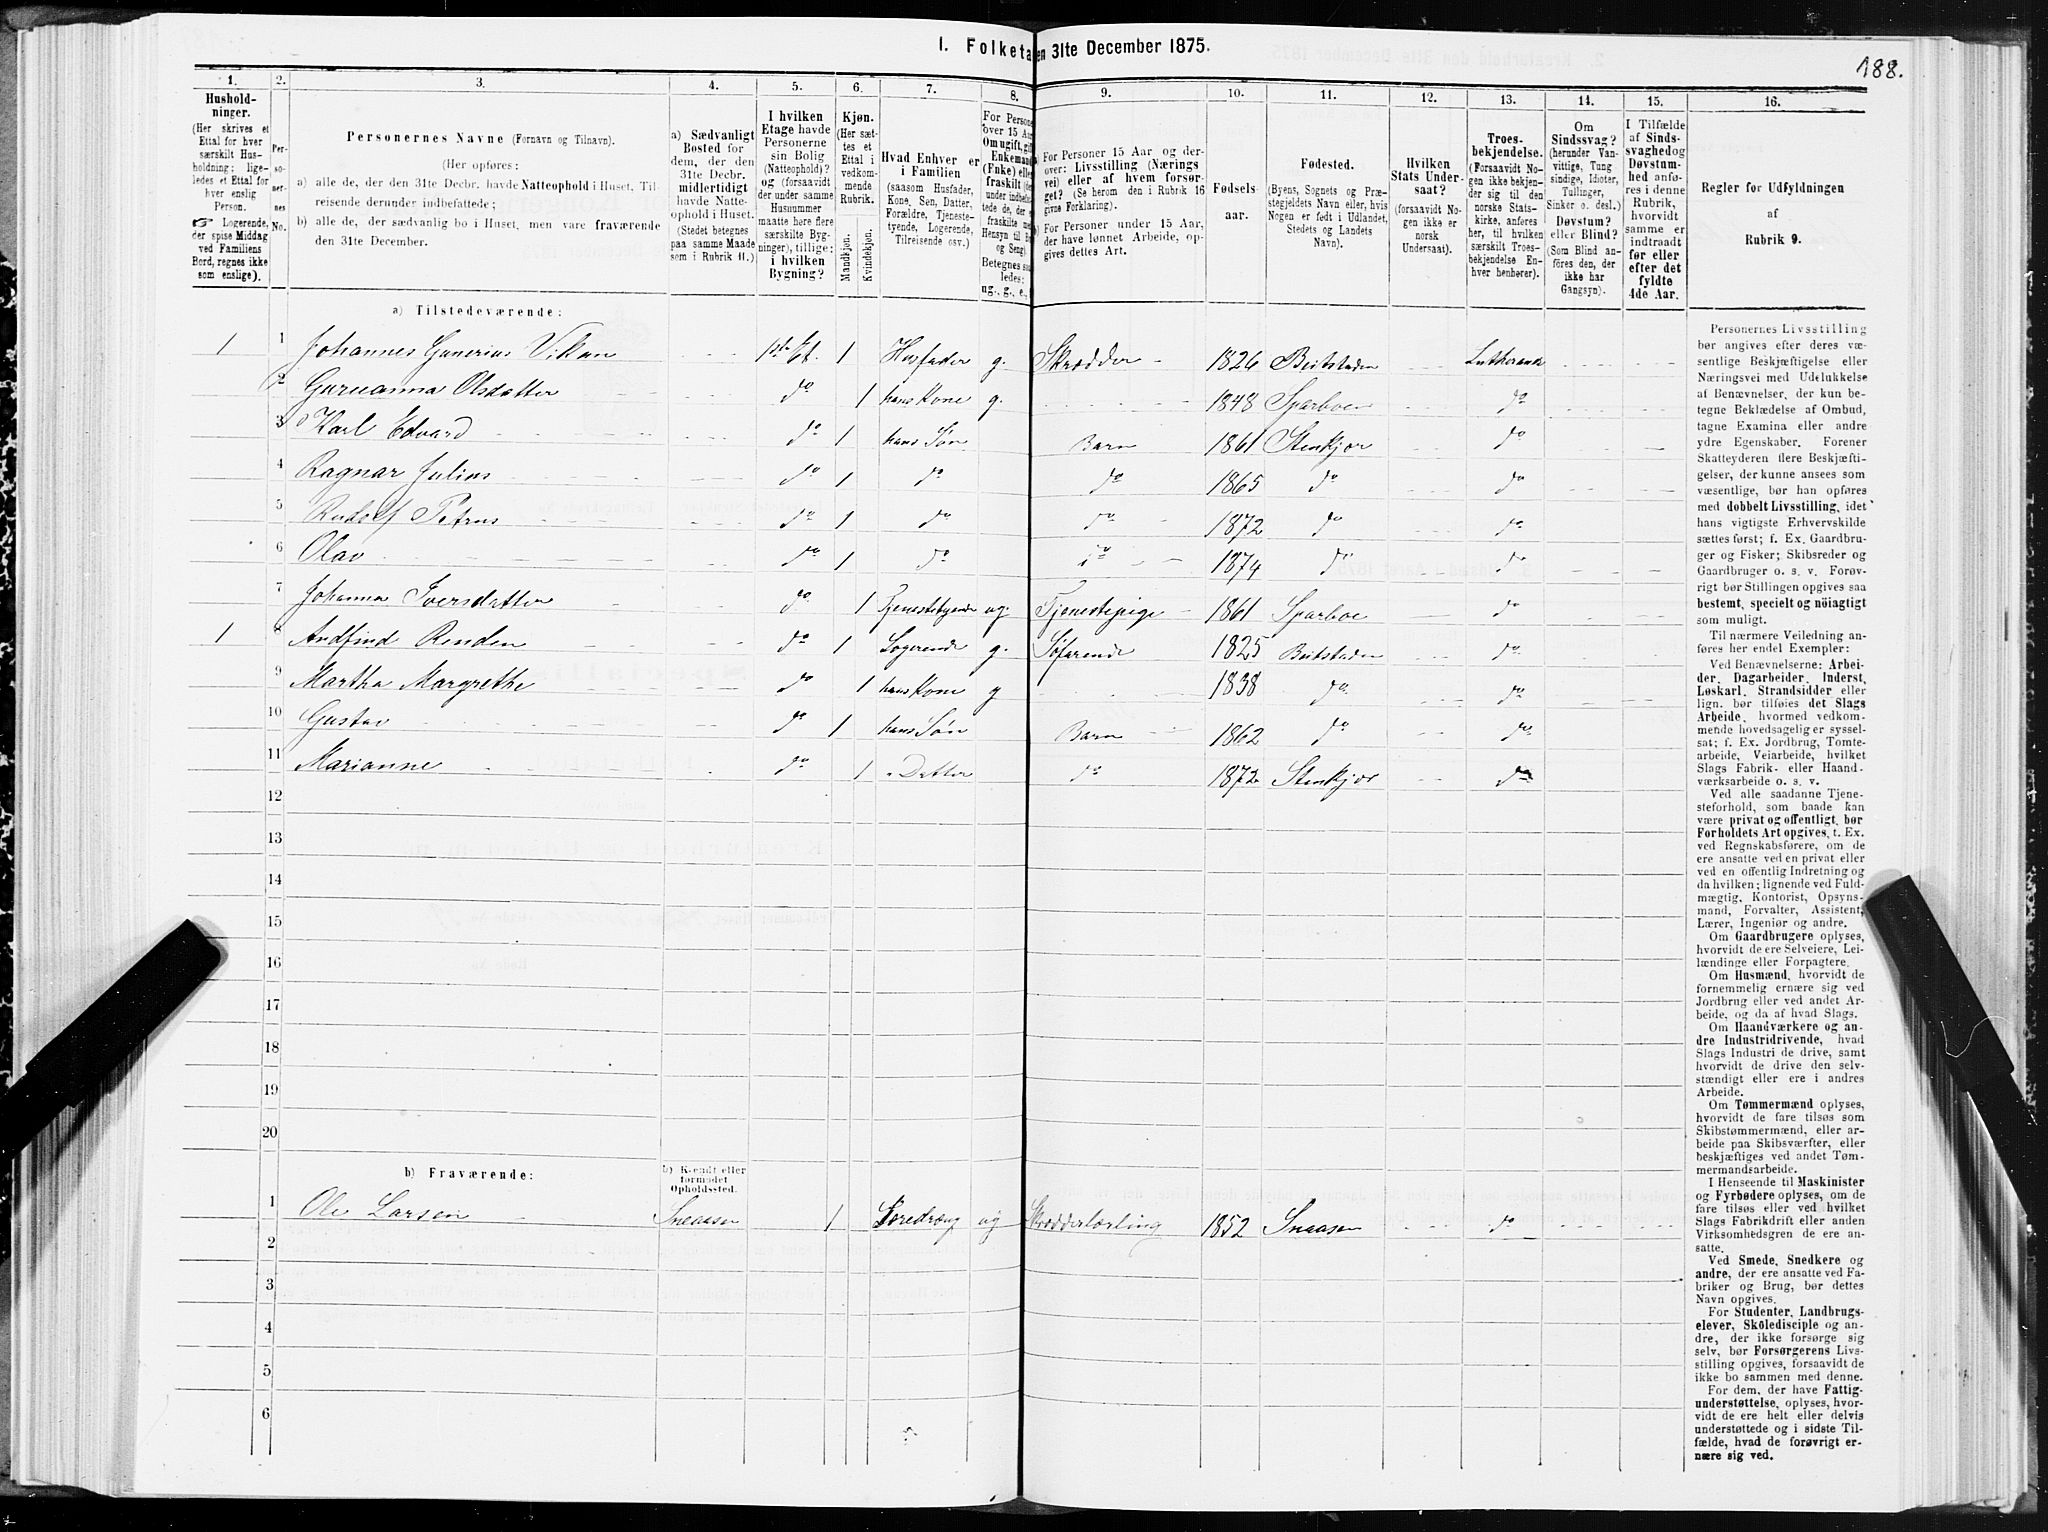 I. Folketa en 31te December 1875.
188.
1. 2. 3. 4. 5. 6. 7. 8. 9. 10. 11. 12. 13. 14. 15. 16.
Hushold-
ninger.
(Her skrives et
Ettal for hver
særskilt Hus-
holdning; lige-
ledes et Ettal for
hver enslig
Person.
☞ Logerende,
der spise Middag
ved Familiens
Bord, regnes ikke
som enslige).
Per-
so-
ner-
nes
No.
Personernes Navne (Fornavn og Tilnavn).
(Her opføres:
a) alle de, der den 31te Decbr. havde Natteophold i Huset, Til-
reisende derunder indbefattede;
b) alle de, der sædvanlig bo i Huset, men vare fraværende
den 31te December.
a) Sædvanligt
Bosted for
dem, der den
31te Decbr.
midlertidigt
havde Natte-
ophold i Huset.
(Stedet betegnes
paa samme Maade
som i Rubrik 11.)
I hvilken
Etage havde
Personerne
sin Bolig
(Natteophold)?
og (forsaavidt
der under samme
Husnummer
maatte høre flere
særskilte Byg-
ninger), tillige:
i hvilken
Bygning?
Kjøn.
(Her sæt-
tes et
Ettal i
vedkom-
mende
Rubrik.
Mandkjøn.
Kvindekjøn.
Hvad Enhver er
i Familien
(saasom Husfader,
Kone, Søn, Datter,
Forældre, Tjeneste-
tyende, Logerende,
Tilreisende osv.)
For Persone
over 15 Aar
Om ugift, gif
Enkemand
(Enke) elle
fraskilt (de
under indbefat-
tede de, de
fraskilte me
Hensyn til Bo
og Seng)
Betegnes saa
ledes:
ug., g., e.,
For Personer 15 Aar og der-
over: Livsstilling (Nærings
vei) eller af hvem forsør-
get? (Se herom den i Rubrik 16
givne Forklaring).
For Personer under 15 Aar,
der have lønnet Arbeide, op-
gives dettes Art.
Fødsels-
aar.
Fødested.
(Byens, Sognets og Præ-
stegjeldets Navn eller, hvis
Nogen er født i Udlandet,
Stedets og Landets
Navn).
Hvilken
Stats Under-
saat?
(forsaavidt No-
gen ikke er
norsk
Undersaat).
Troes-
bekjendelse.
(Forsaavidt No-
gen ikke bekjen-
der sig til den
norske Stats-
kirke, anføres
her, til hvilken
særskilt Troes-
bekjendelse En-
hver henhører).
Om
Sindssvag?
(herunder Van-
vittige, Tung
sindige, Idioter,
Tullinger,
Sinker o. desl.)
Døvstum?
eller Blind?
(Som Blind an-
føres den, der
ikke har
Gangsyn).
I Tilfælde
af Sinds-
svaghed og
Døvstum-
hed anfø-
res i denne
Rubrik,
hvorvidt
samme er
indtraadt
før eller
efter det
fyldte
4de Aar.
Regler før Udfyldningen
af
Rubrik 9.
a) Tilstedeværende:
1 1 Johannes Gunerius Vikan 1ste Et. 1 Husfader g. Skrædder 1826 Beitstaden Lutheransk
2 Gurueanna Olsdatter do 1 hans Kone g. 1848 Sparboen do
3 Karl Edvard do 1 hans Søn Barn 1861 Stenkjær do
4 Ragnar Julius do 1 do do 1865 do do
5 Rudolf Petrus do 1 do do 1872 do do
6 Olav do 1 do do 1874 do do
7 Johanna Iversdatter do 1 Tjenestetyende ug. Tjenestepige 1861 Sparboe do
1 8 Andfind Renden do 1 Logerende g. Søfarende 1825 Beitstaden do
9 Martha Margrethe do 1 hans Kone g 1838 do do
10 Gustav do 1 hans Søn Barn 1862 do do
11 Marianne do 1 " Datter do 1872 Stenkjær do
12
13
14
15
16
17
18
19
20
b) Fraværende:
b) Kjendt eller
formodet
Opholdssted.
1 Ole Larsen Sneaasen 1 Læredræng ug Skrædderlærling 1852 Snaasen do
2
3
4
5
6
Personernes Livsstilling
bør angives efter deres væ-
sentlige Beskjæftigelse eller
Næringsvei med Udelukkelse
af Benævnelser, der kun be-
tegne Beklædelse af Ombud,
tagne Examina eller andre
ydre Egenskaber. Forener
Skatteyderen flere Beskjæfti-
gelser, der kunne ansees som
væsentlige, bør han opføres
med dobbelt Livsstilling, idet
hans vigtigste Erhvervskilde
sættes først; f. Ex. Gaardbru-
ger og Fisker; Skibsreder og
Gaardbruger o. s. v. Forøv-
rigt bør Stillingen opgives saa
bestemt, specielt og nöiagtigt
som muligt.
Til nærmere Veiledning an-
føres her endel Exempler:
Ved Benævnelserne: Arbei-
der, Dagarbeider, Inderst,
Løskarl, Strandsidder eller
lign. bør tilføies det Slags
Arbeide, hvormed vedkom-
mende hovedsagelig er syssel-
sat; f. Ex. Jordbrug, Tomte-
arbeide, Veiarbeide, hvilket
Slags Fabrik- eller Haand-
værksarbeide o. s. v.
Ved alle saadanne Tjene-
steforhold, som baade kan
være privat og offentligt, bør
Forholdets Art opgives, t. Ex.
ved Regnskabsførere, om de
ere ansatte ved en privat eller
ved en offentlig Indretning og
da hvilken; lignende ved Fuld-
mægtig, Kontorist, Opsyns-
mand, Forvalter, Assistent,
Lærer, Ingeniør og andre.
Om Gaardbrugere oplyses,
hvorvidt de ere Selveiere, Lei-
lændinge eller Forpagtere.
Om Husmænd, hvorvidt de
fornemmelig ernære sig ved
Jordbrug eller ved andet Ar-
beide, og da af hvad Slags.
Om Haandværkere og an-
dre Industridrivende, hvad
Slags Industri de drive, samt
hvorvidt de drive den selv-
stændigt eller ere i andres
Arbeide.
Om Tømmermænd oplyses,
hvorvidt de fare tilsøs som
Skibstømmermænd, eller ar-
beide paa Skibsværfter, eller
beskjæftiges ved andet Tøm-
mermandsarbeide.
I Henseende til Maskinister
og Fyrbødere oplyses, om de
fare tilsøs eller ved hvilket
Slags Fabrikdrift eller anden
Virksomhedsgren de ere an-
satte.
Ved Smede, Snedkere og
andre, der ere ansatte ved Fa-
briker og Brug, bør dettes
Navn opgives.
For Studenter, Landbrugs-
elever, Skôledisciple og an-
dre, der ikke forsørge sig
selv, bør Forsørgerens Livs-
stilling opgives, forsaavidt de
ikke bo sammen med denne.
For dem, der have Fattig-
understøttelse, oplyses, hvor-
vidt de ere helt eller delvis
understøttede og i sidste Til-
fælde, hvad de forøvrigt er-
nære sig ved.